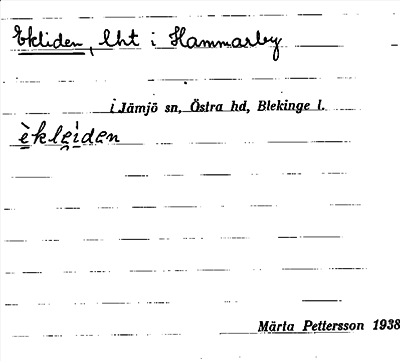 Ekliden, lht i Hammarby
i Jämjö sn, Östra hd, Blekinge l.
èkleìden
Märta Pettersson 1938